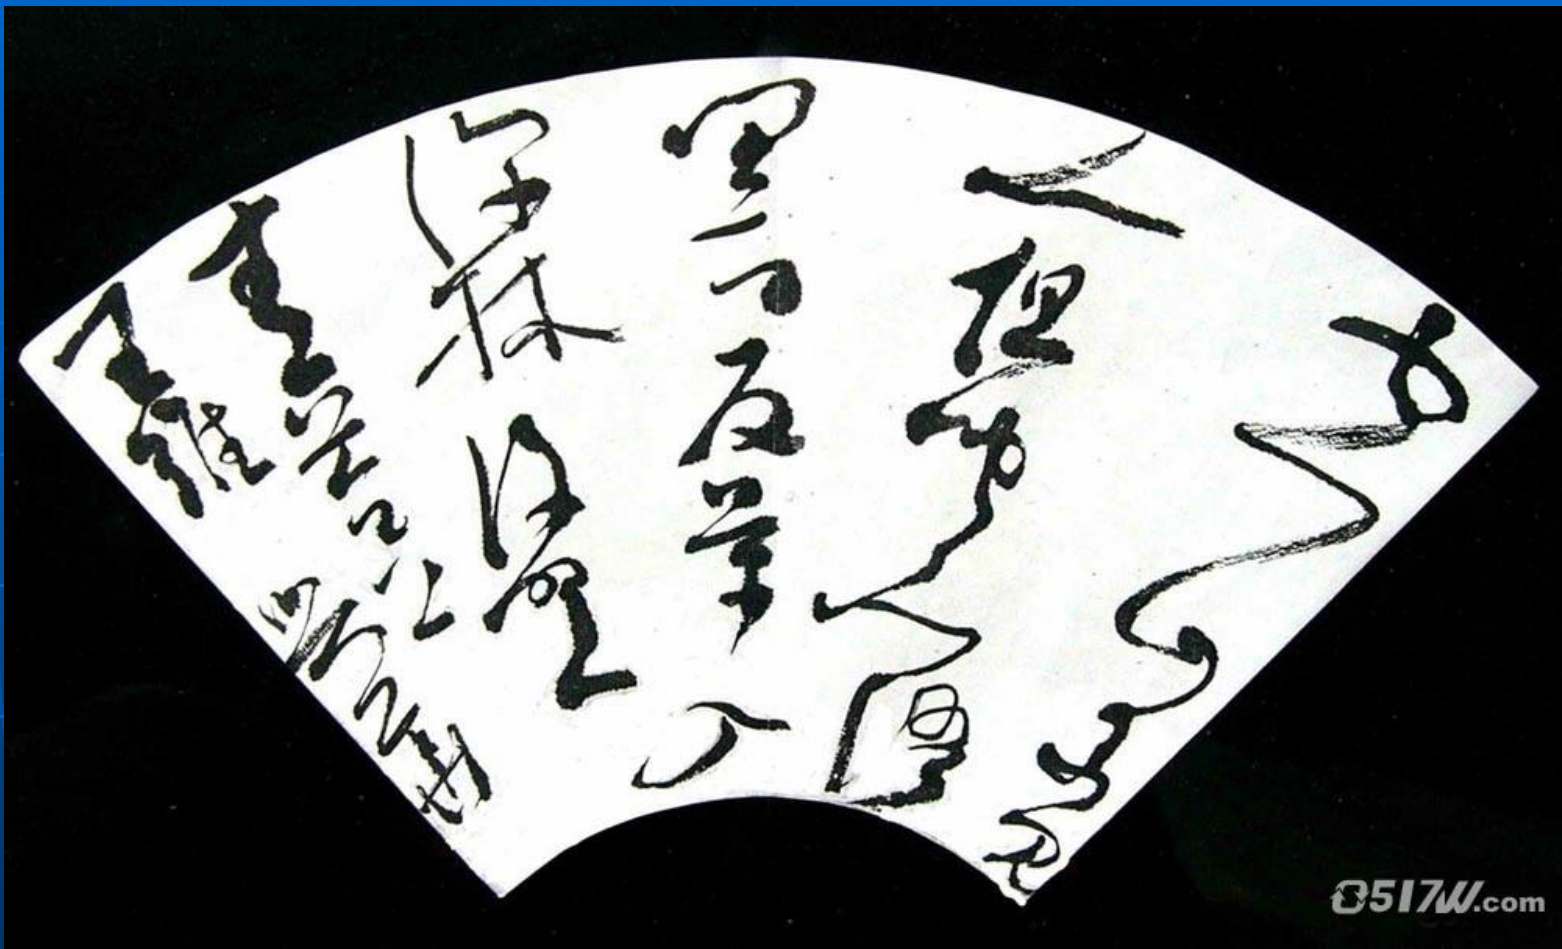 空山不見
人但聞人語
響返景入
深林復照
青苔上
王維
0517W.com